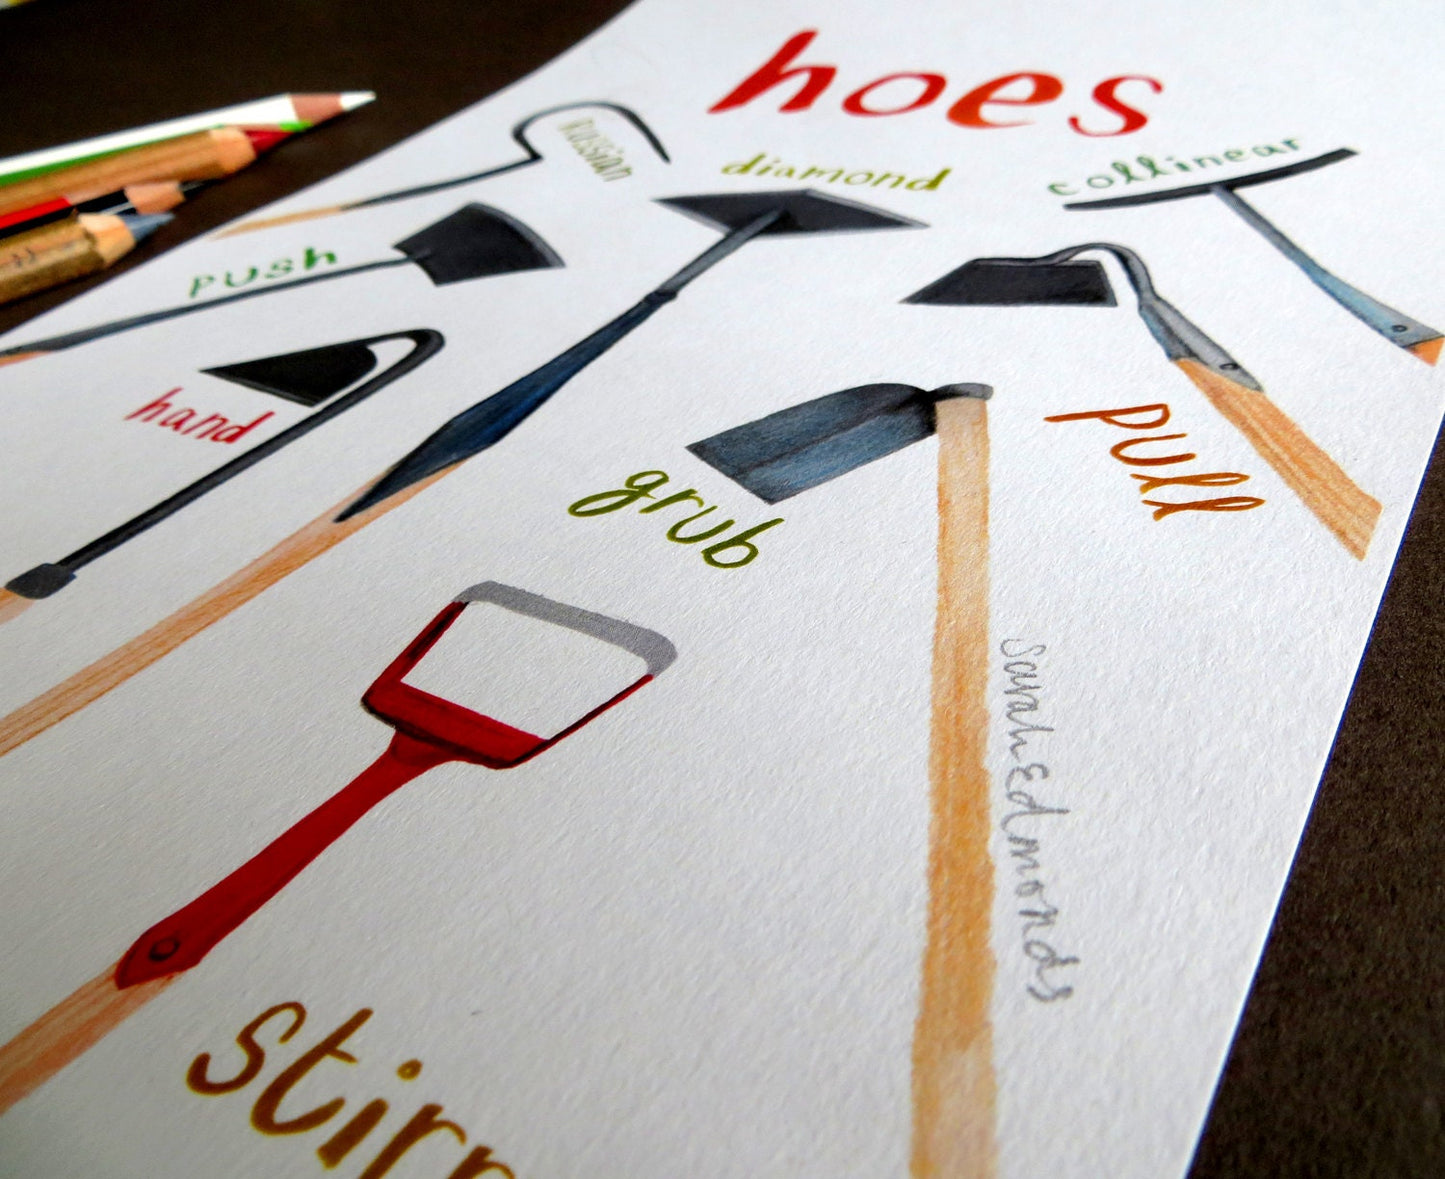 hoes
Russian
diamond
collinear
push
hand
pull
grub
sarah Edmonds
stirr